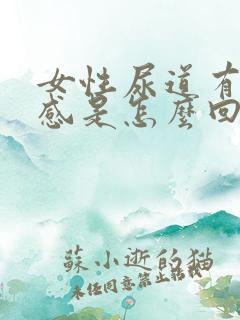 女性尿道有
感是怎麼回
蘇小逝的猫
未经同意禁止转载